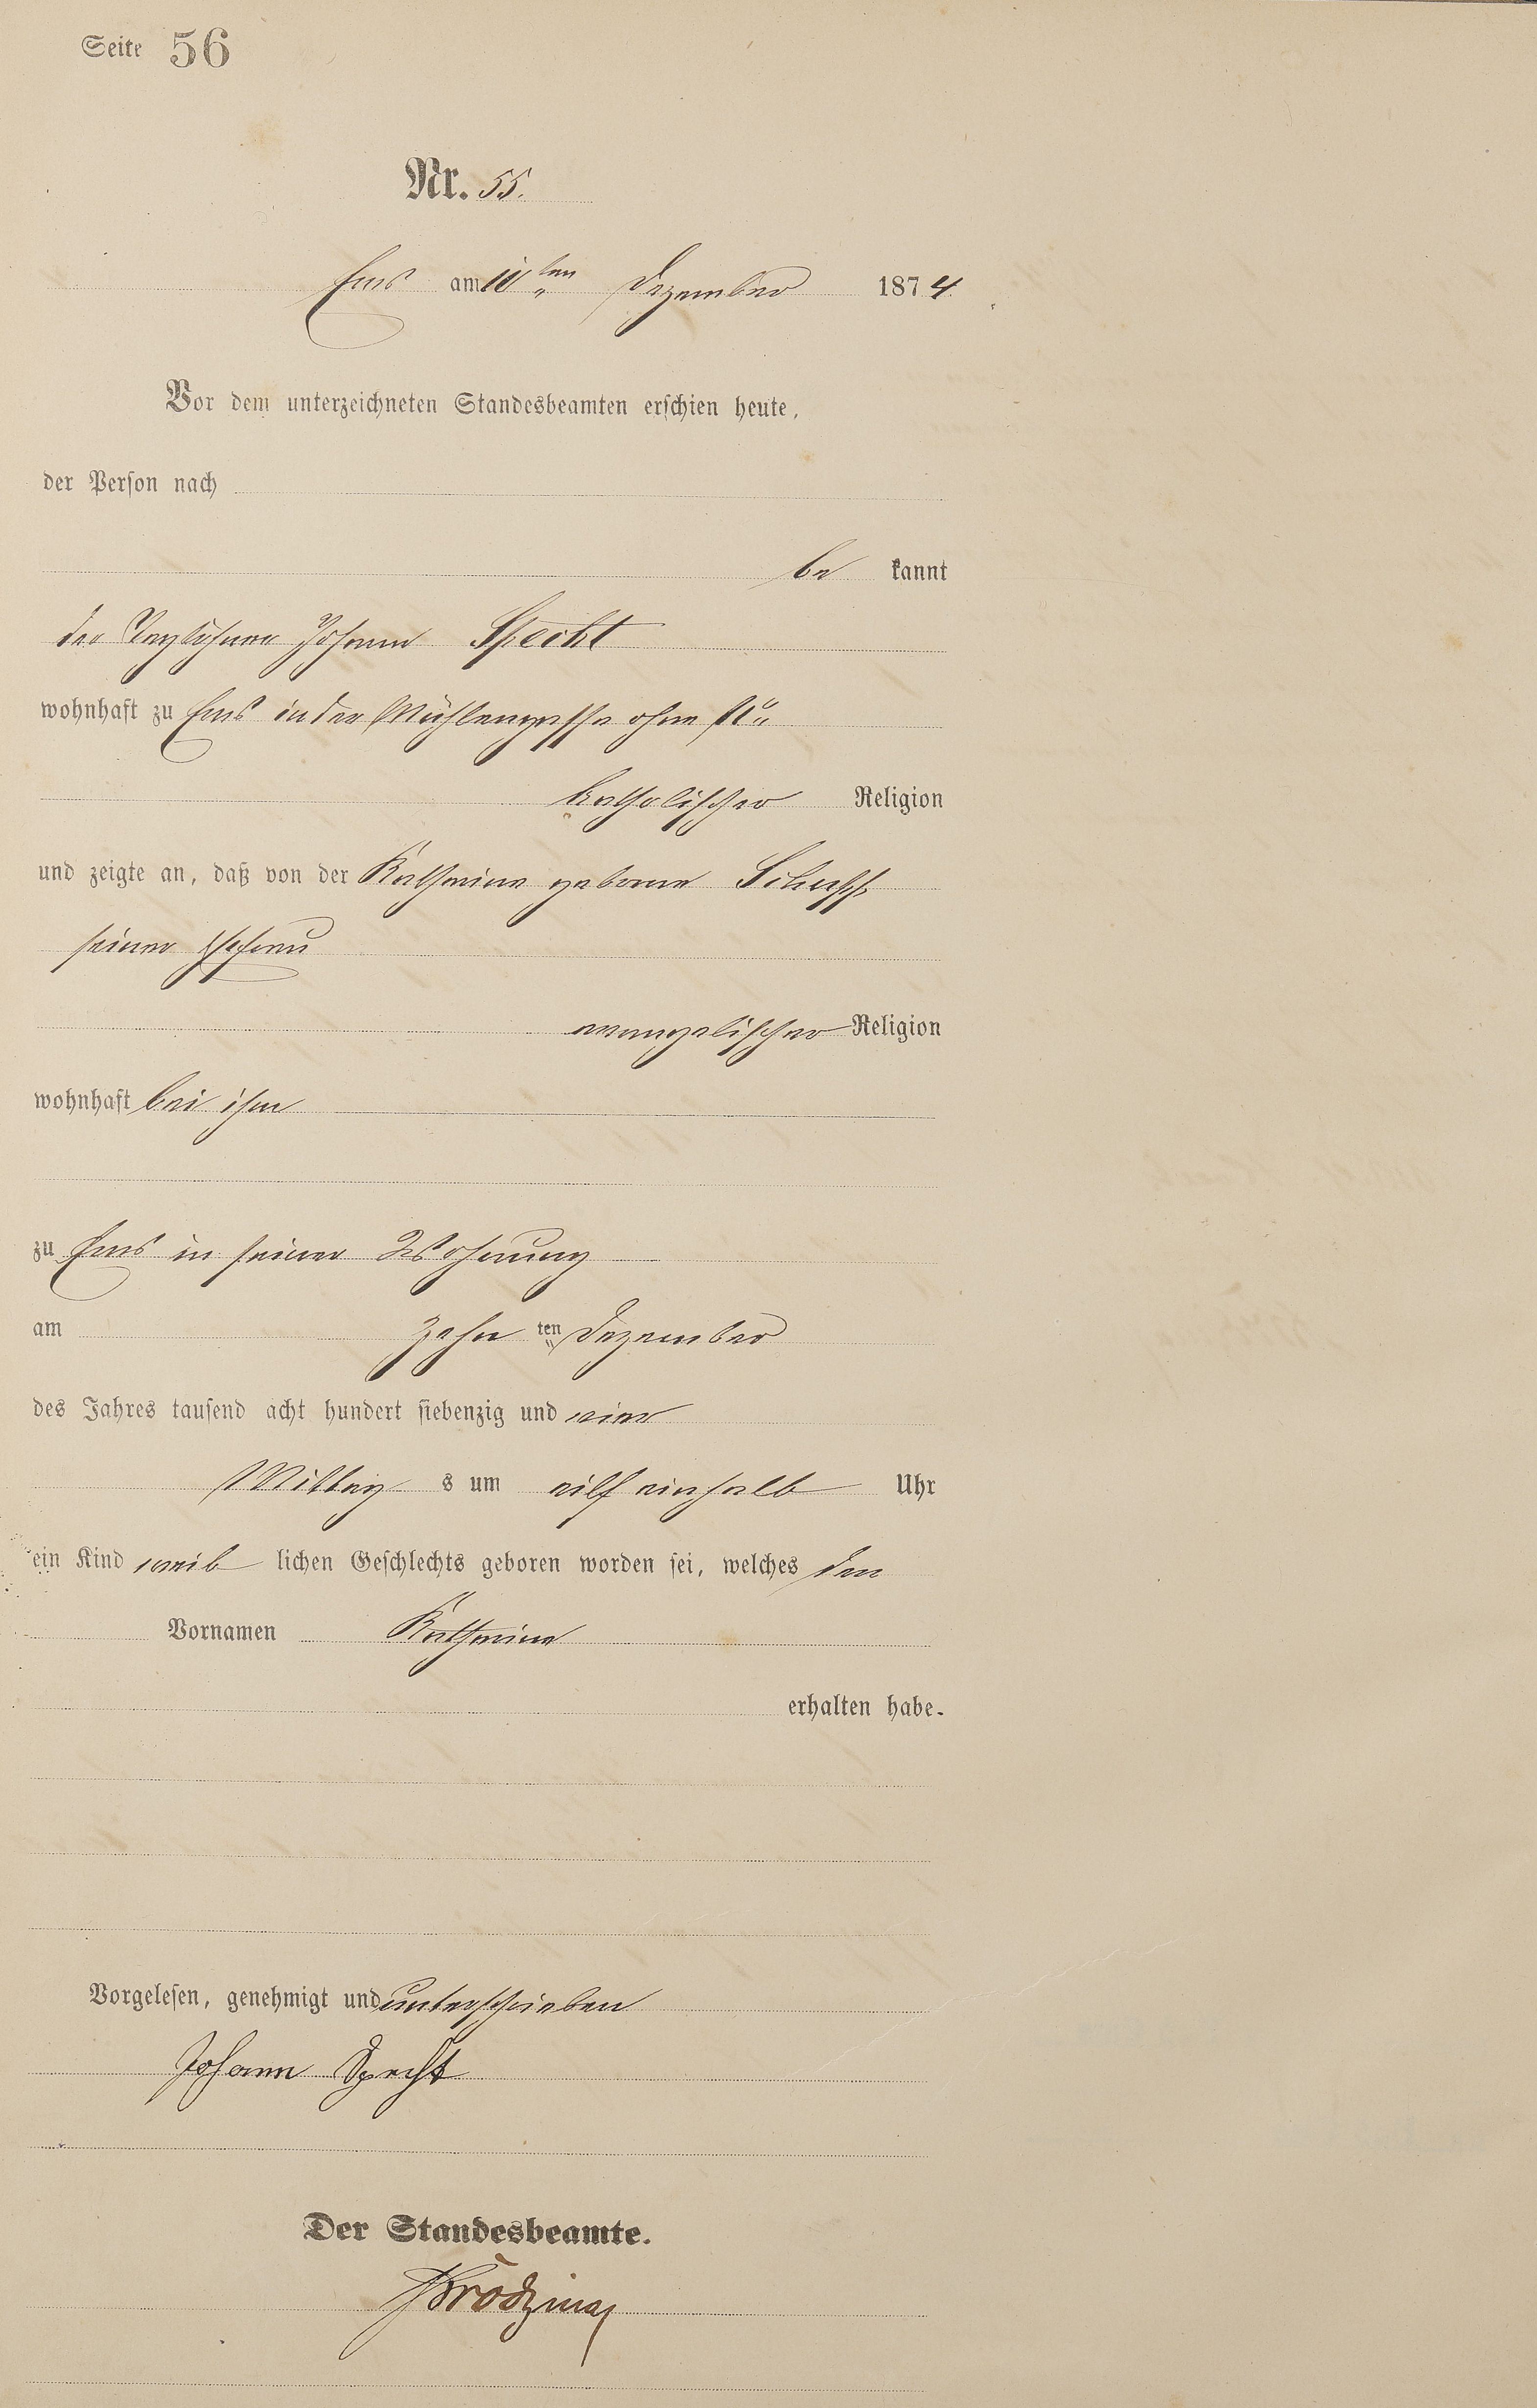 Seite 56
Nr. 55.
Ems am 10ten Dezember 1874.
Vor dem unterzeichneten Standesbeamten erschien heute,
der Person nach
be kannt
der Taglöhner Johann Specht
wohnhaft zu Ems in der Mühlengasse ohne No
katholischer Religion
und zeigte an, daß von der Katharina geborne Schupp
seiner Ehefrau
evangelischer Religion
wohnhaft bei ihm
zu Ems in seiner Wohnung
am zehn ten Dezember
des Jahres tausend acht hundert siebenzig und vier
Mittag s um eilf einhalb Uhr
ein Kind weib lichen Geschlechts geboren worden sei, welches den
Vornamen Katharina
erhalten habe.
Vorgelesen, genehmigt und unterschrieben
Johann Specht
Der Standesbeamte.